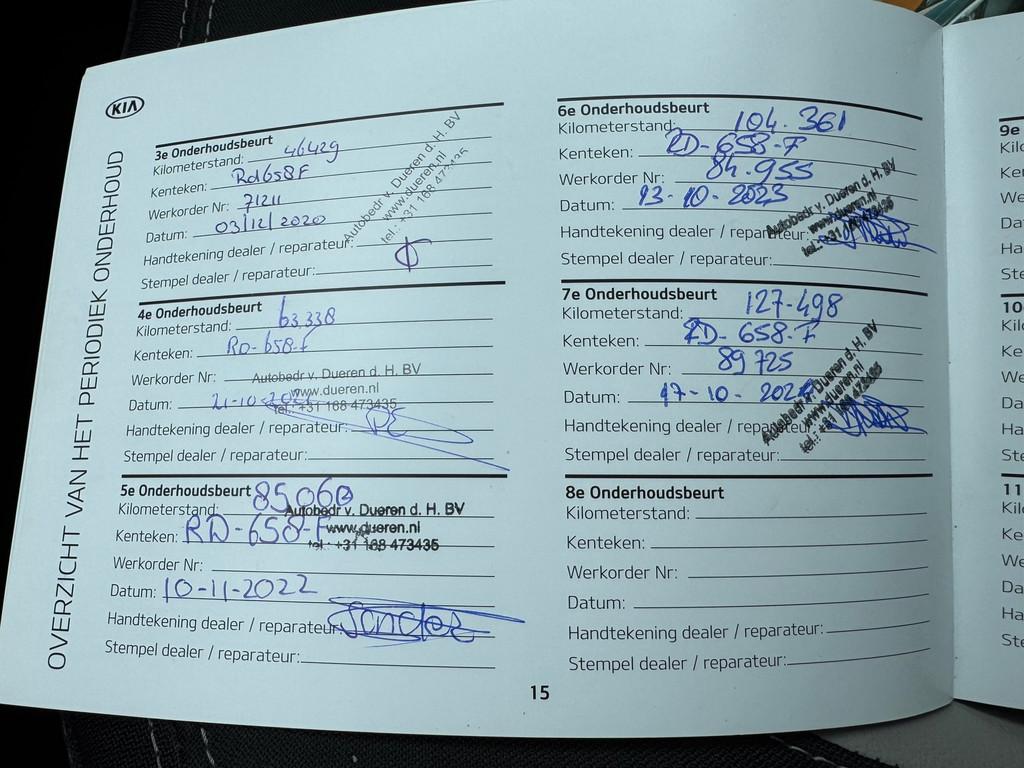 KIA
OVERZICHT VAN HET PERIODIEK ONDERHOUD
3e Onderhoudsbeurt
Kilometerstand: 46429
Kenteken: Rd658F
Werkorder Nr: 71211
Datum: 03/12/2020
Handtekening dealer / reparateur:
Stempel dealer / reparateur:
Autobedr v. Dueren d. H. BV
www.dueren.nl
tel.: +31 168 473435
4e Onderhoudsbeurt
Kilometerstand: 63.338
Kenteken: RD-658-f
Werkorder Nr:
Datum: 21-10-2021
Handtekening dealer / reparateur:
Stempel dealer / reparateur:
Autobedr v. Dueren d. H. BV
www.dueren.nl
tel.: +31 168 473435
5e Onderhoudsbeurt
Kilometerstand: 85068
Kenteken: RD-658-F
Werkorder Nr:
Datum: 10-11-2022
Handtekening dealer / reparateur:
Stempel dealer / reparateur:
Autobedr v. Dueren d. H. BV
www.dueren.nl
tel.: +31 168 473435
6e Onderhoudsbeurt
Kilometerstand: 104.361
Kenteken: RD-658-F
Werkorder Nr: 84.955
Datum: 13-10-2023
Handtekening dealer / reparateur:
Stempel dealer / reparateur:
Autobedr v. Dueren d. H. BV
www.dueren.nl
tel.: +31 168 473435
7e Onderhoudsbeurt
Kilometerstand: 127-498
Kenteken: RD-658-F
Werkorder Nr: 89725
Datum: 17-10-2024
Handtekening dealer / reparateur:
Stempel dealer / reparateur:
Autobedr v. Dueren d. H. BV
www.dueren.nl
tel.: +31 168 473435
8e Onderhoudsbeurt
Kilometerstand:
Kenteken:
Werkorder Nr:
Datum:
Handtekening dealer / reparateur:
Stempel dealer / reparateur:
15
9e
Kilo
Ke
We
Da
Ha
Ste
10
Kil
Ke
We
Da
Ha
Ste
11
Kil
Ke
We
Da
Ha
Ste